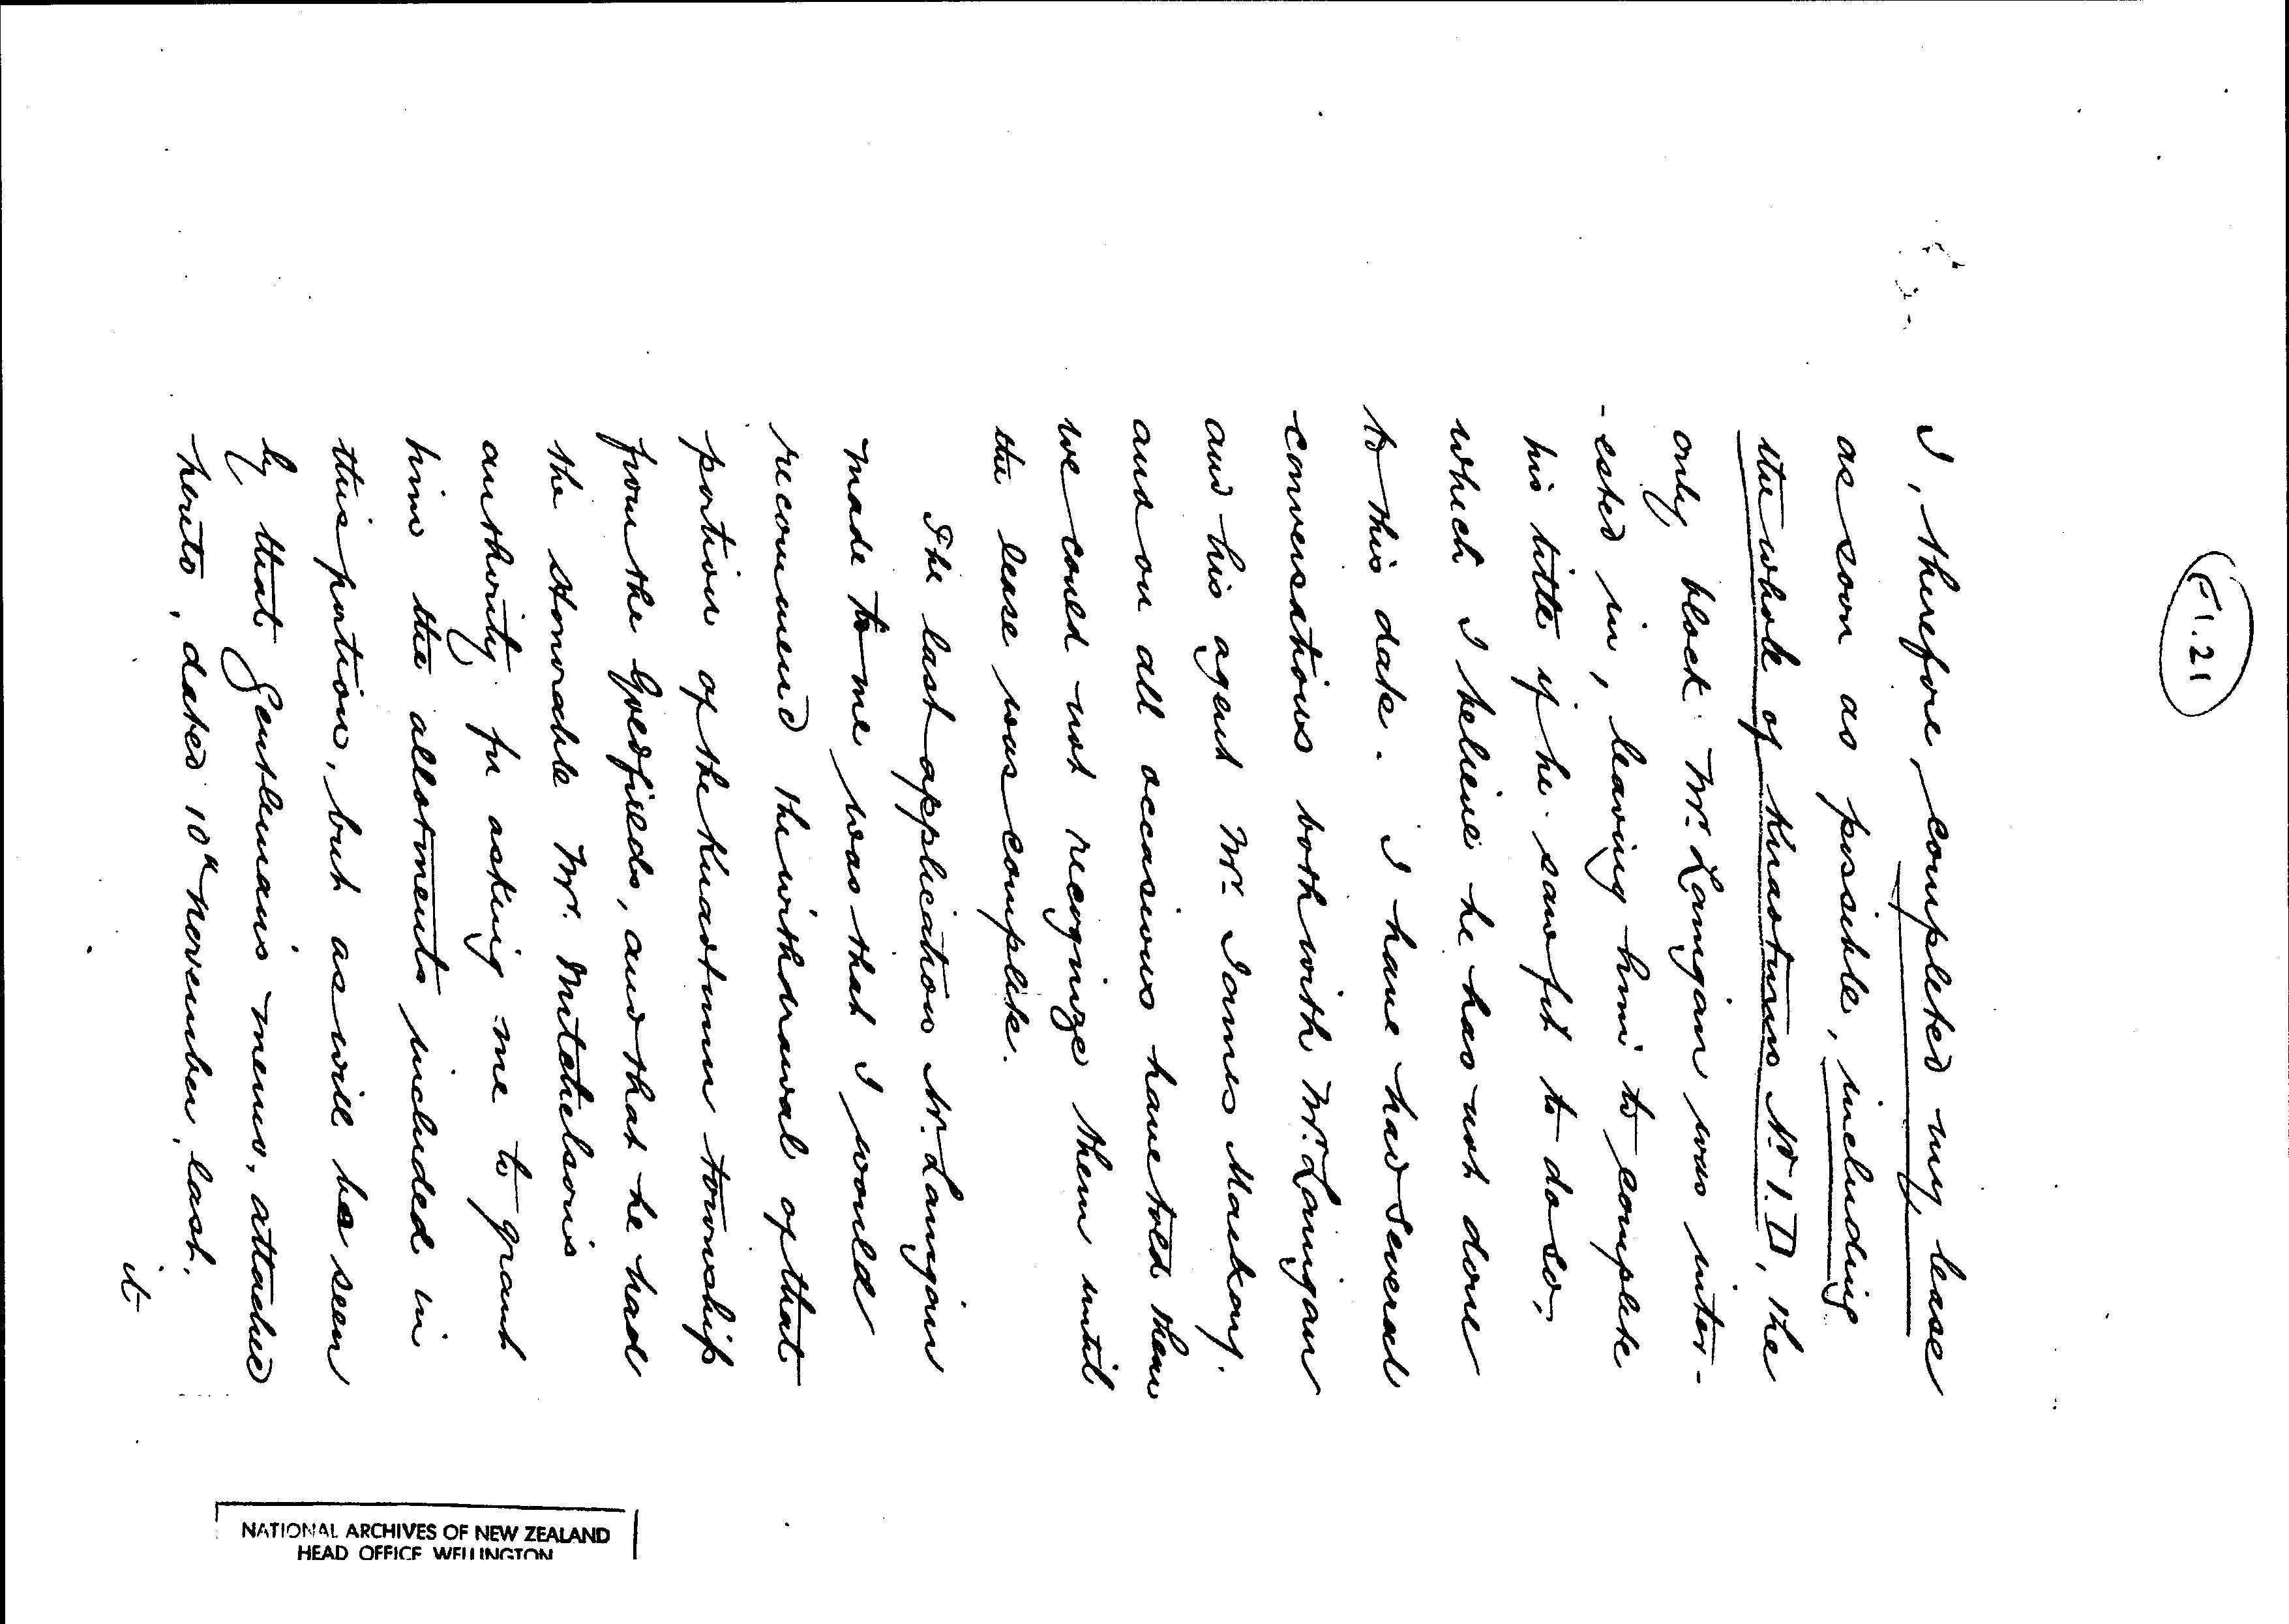 F1.21
I, therefore, completed my lease
as soon as possible, including
the whole of Kuaotunu No. 1. D, the
only block Mr. Lanigan was inter-
-ested in, leaving him to complete
his title if he saw fit to do so,
which I believe he has not done
to this date. I have had several
conversations both with Mr. Lanigan
and his agent Mr. James Mackay.
and on all occasions have told them
we could not recognize them until
the lease was complete.
The last application Mr. Lanigan
made to me was that I would
recommend the withdrawal of that
portion of the Kuaotunu township
from the Goldfields, and that he had
the Honorable Mr. Mitchelson's
authority for asking me to grant
him the allotments included in
this portion, but as will be seen
by that Gentleman's memo, attached
hereto, dated 10th November, last.
it
NATIONAL ARCHIVES OF NEW ZEALAND
HEAD OFFICE WELLINGTON